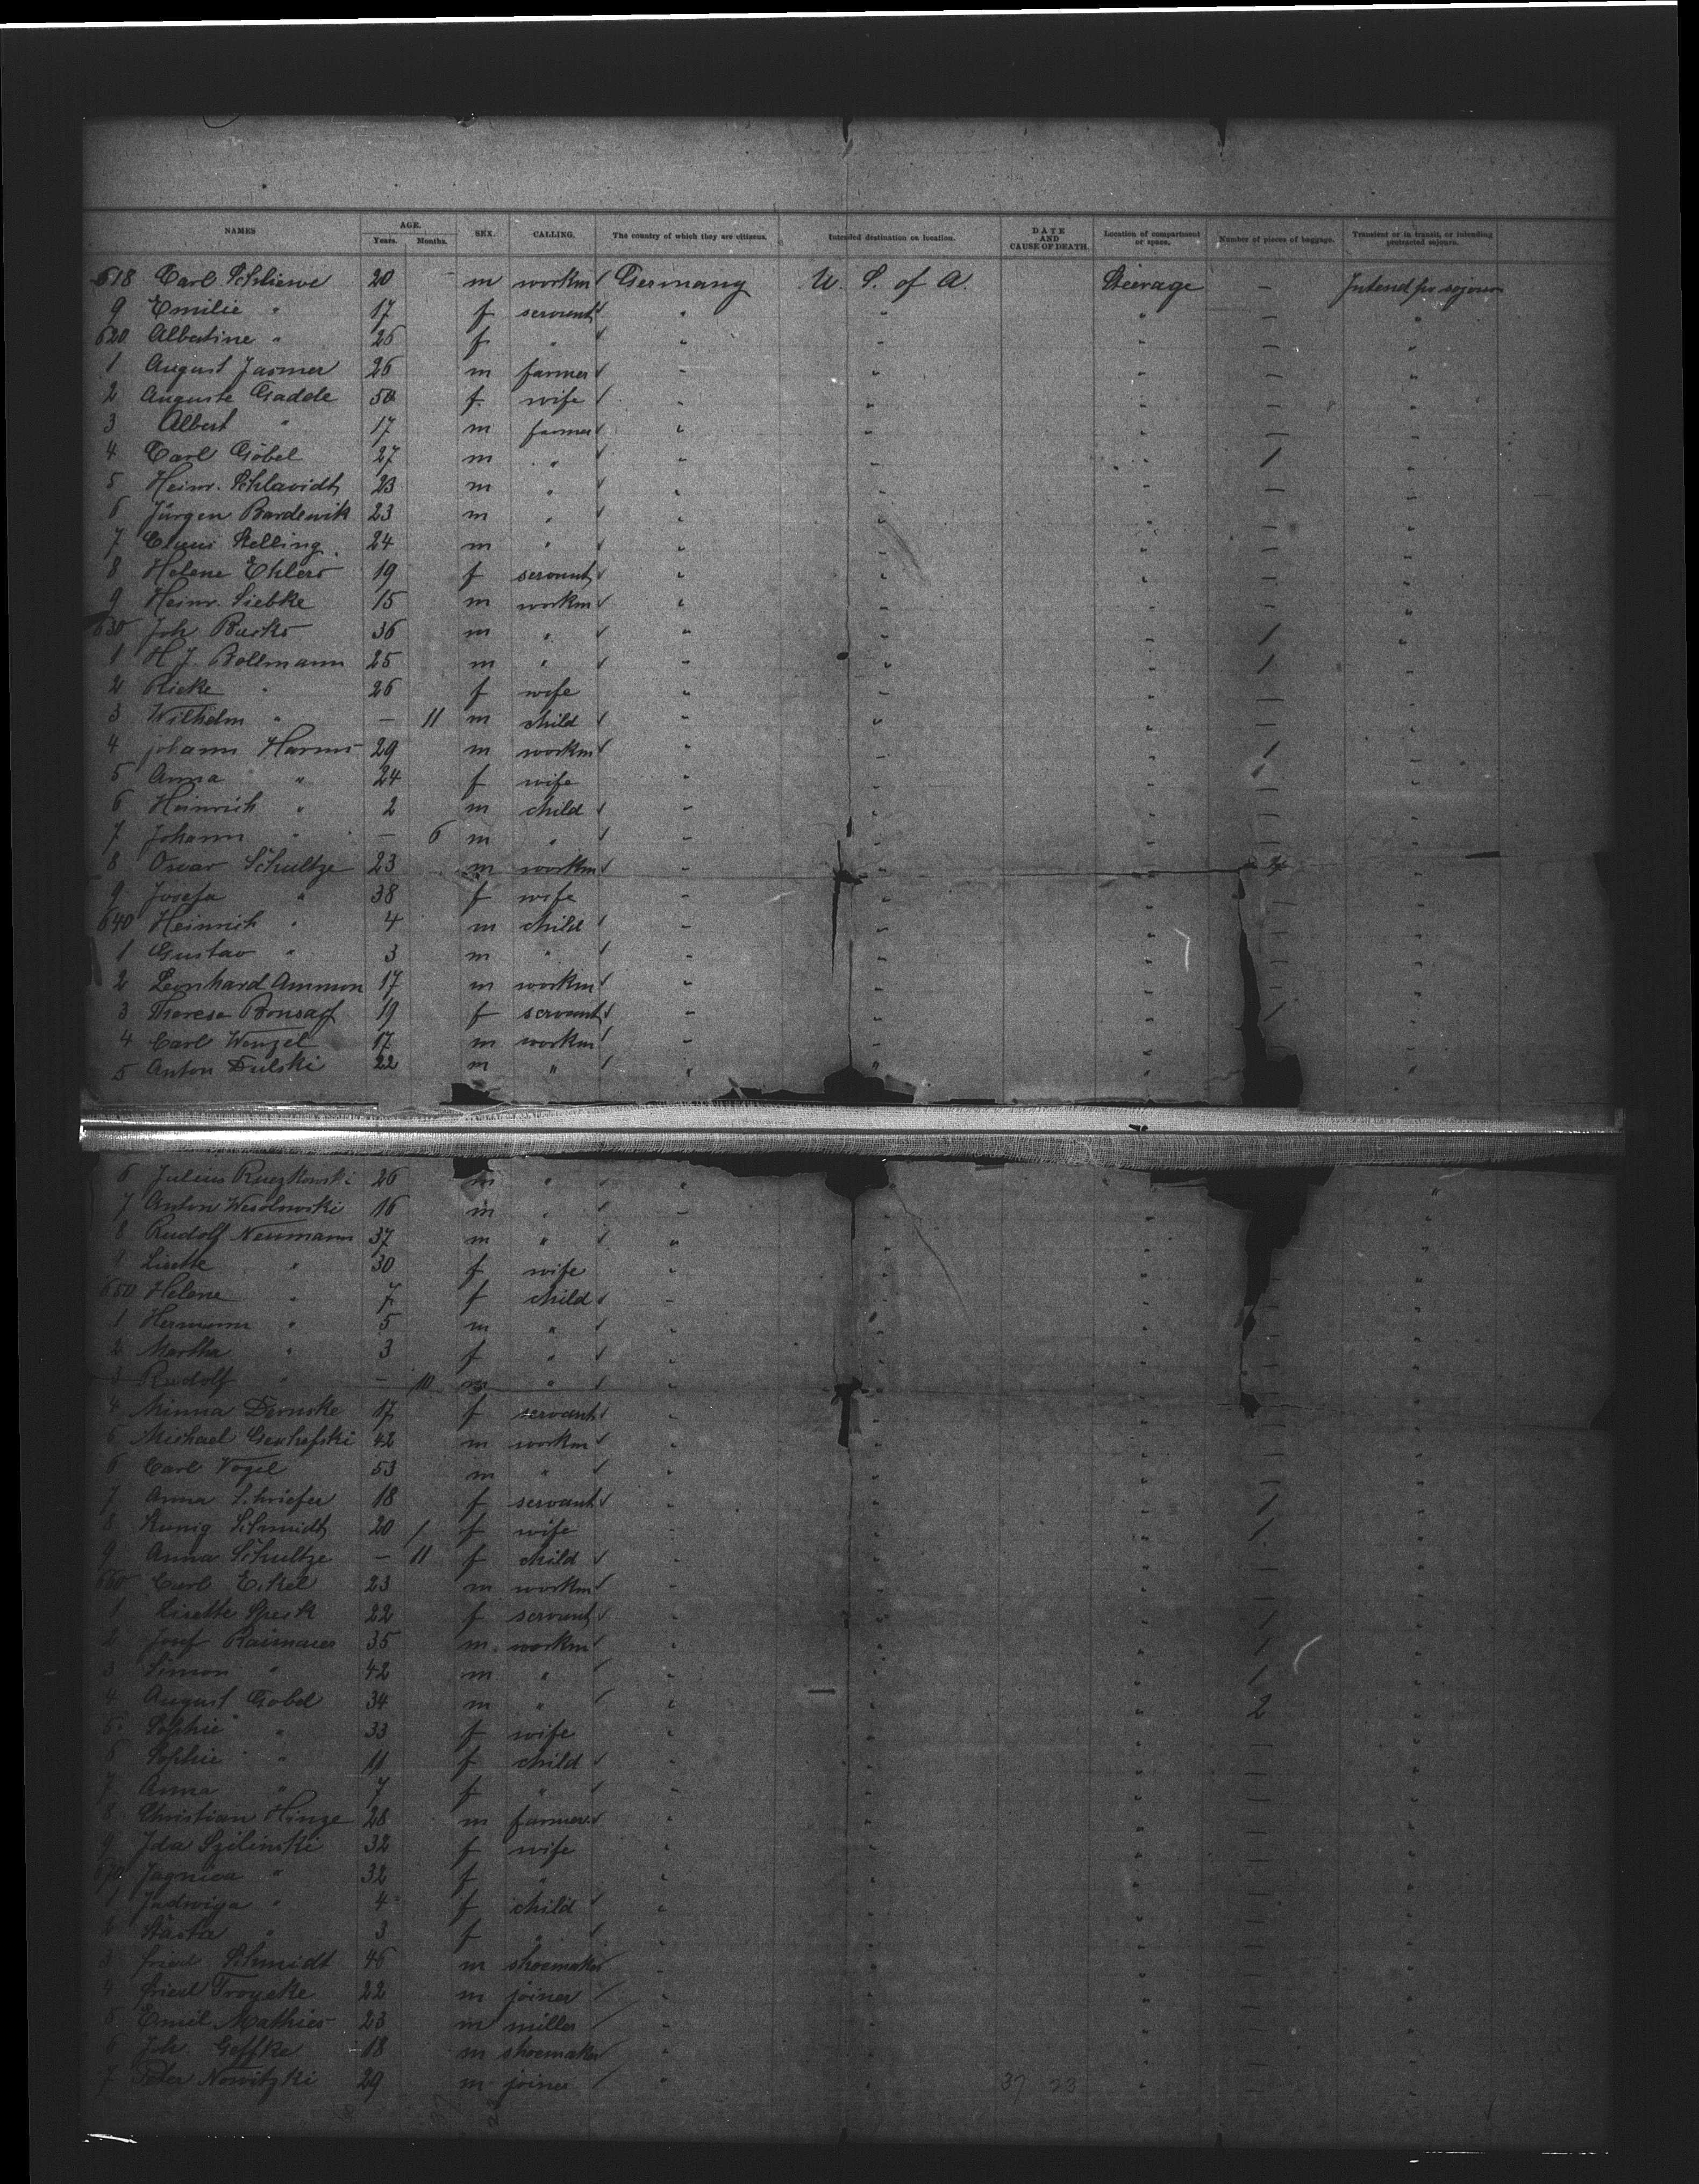 NAMES AGE. Years. Months. SEX. CALLING. The country of which they are citizens. Intended destination or location. DATE AND CAUSE OF DEATH. Location of compartment or space. Number of pieces of baggage. Transient or in transit, or intending protracted sojourn.
618 Carl Schliewe 20 m workm Germany U. S. of A. Steerage — Intend pr sojourn
9 Emilie " 17 f servent " " " — "
620 Albertine " 26 f " " " " — "
1 August Jasmer 26 m farmer " " " — "
2 Auguste Gadde 50 f. wife " " " — "
3 Albert " 17 m farmer " " " — "
4 Carl Göbel 27 m " " " " 1 "
5 Heinr. 23 m " " " " — "
6 Jürgen Bardewik 23 m " " " " — "
7 Claus Kelling 24 m " " " " — "
8 Helene Ehlers 19 f servant " " " — "
9 Heinr. Siebke 15 m workm " " " — "
630 Joh 36 m " " " " 1 "
1 H J. Bollmann 25 m " " " " 1 "
2 Rieke " 26 f wife " " " — "
3 Wilhelm " — 11 m child " " " — "
4 johann Harms 29 m workm " " " 1 "
5 Anna " 24 f wife " " " — "
6 Heinrich " 2 m child " " " — "
7 Johann " — 6 m " " " " — "
8 Oscar Schultze 23 m workm " " " "
9 Josefa " 38 f wife " " " "
640 Heinrich " 4 m child " " " — "
1 Gustav " 3 m " " " " — "
2 Leonhard Ammon 17 m workm " " " — "
3 Therese 19 f servant " " " 1 "
4 Carl Wenzel 17 m workm " " " "
5 Anton Dulski 22 m " " " " "
6 Julius Ruczkowski 26 m " " "
7 Anton Wesolowski 16 m " " " " "
8 Rudolf Neumann 37 m " " " " "
9 Lisette " 30 f wife " " " — "
650 Helene " 7 f child " " " — "
1 Hermann " 5 m " " " " — "
2 Martha " 3 f " " " " — "
3 Rudolf " — 10 m " " " " — "
4 Minna 17 f servant " " " — "
5 Michael 42 m workm " " " — "
6 Carl Vogel 53 m " " " " — "
7 Anna Schriefer 18 f servant " " " 1 "
8 Kunig Schmidt 20 / f wife " " " 1 "
9 Anna Schultze — 11 f child " " " — "
660 Carl Eckel 23 m workm " " " — "
1 Lisette Speck 22 f servant " " " 1 "
2 Josef 35 m workm " " " 1 "
3 Simon " 42 m " " " " 1 "
4 August Göbel 34 m " " " " 2 "
5 Sophie " 33 f wife " " " — "
6 Sophie " 11 f child " " " — "
7 Anna " 7 f " " " " — "
8 Christian Hinze 28 m farmer " " " — "
9 Ida Szilinski 32 f wife " " " — "
670 " 32 f " " " " — "
1 Jadwiga " 4 f child " " " — "
2 " 3 f " " " " — "
3 Fried Schmidt 46 m shoemaker " " " — "
4 Fried Troycke 22 m joiner " " " — "
5 Emil Mathies 23 m miller " " " — "
6 Joh. Geffke 18 m shoemaker " " " — "
7 Peter Nowitzki 29 m joiner " " 37 23 " — "